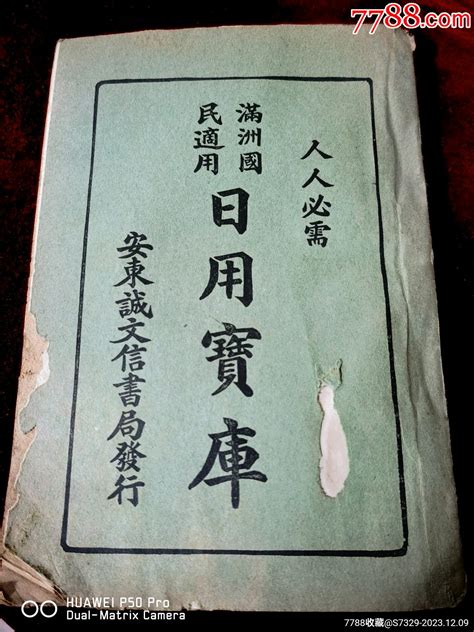 7788.com
人人必需
滿洲國
民適用
日用寶庫
安東誠文信書局發行
HUAWEI P50 Pro
Dual-Matrix Camera
7788收藏@S7329-2023.12.09